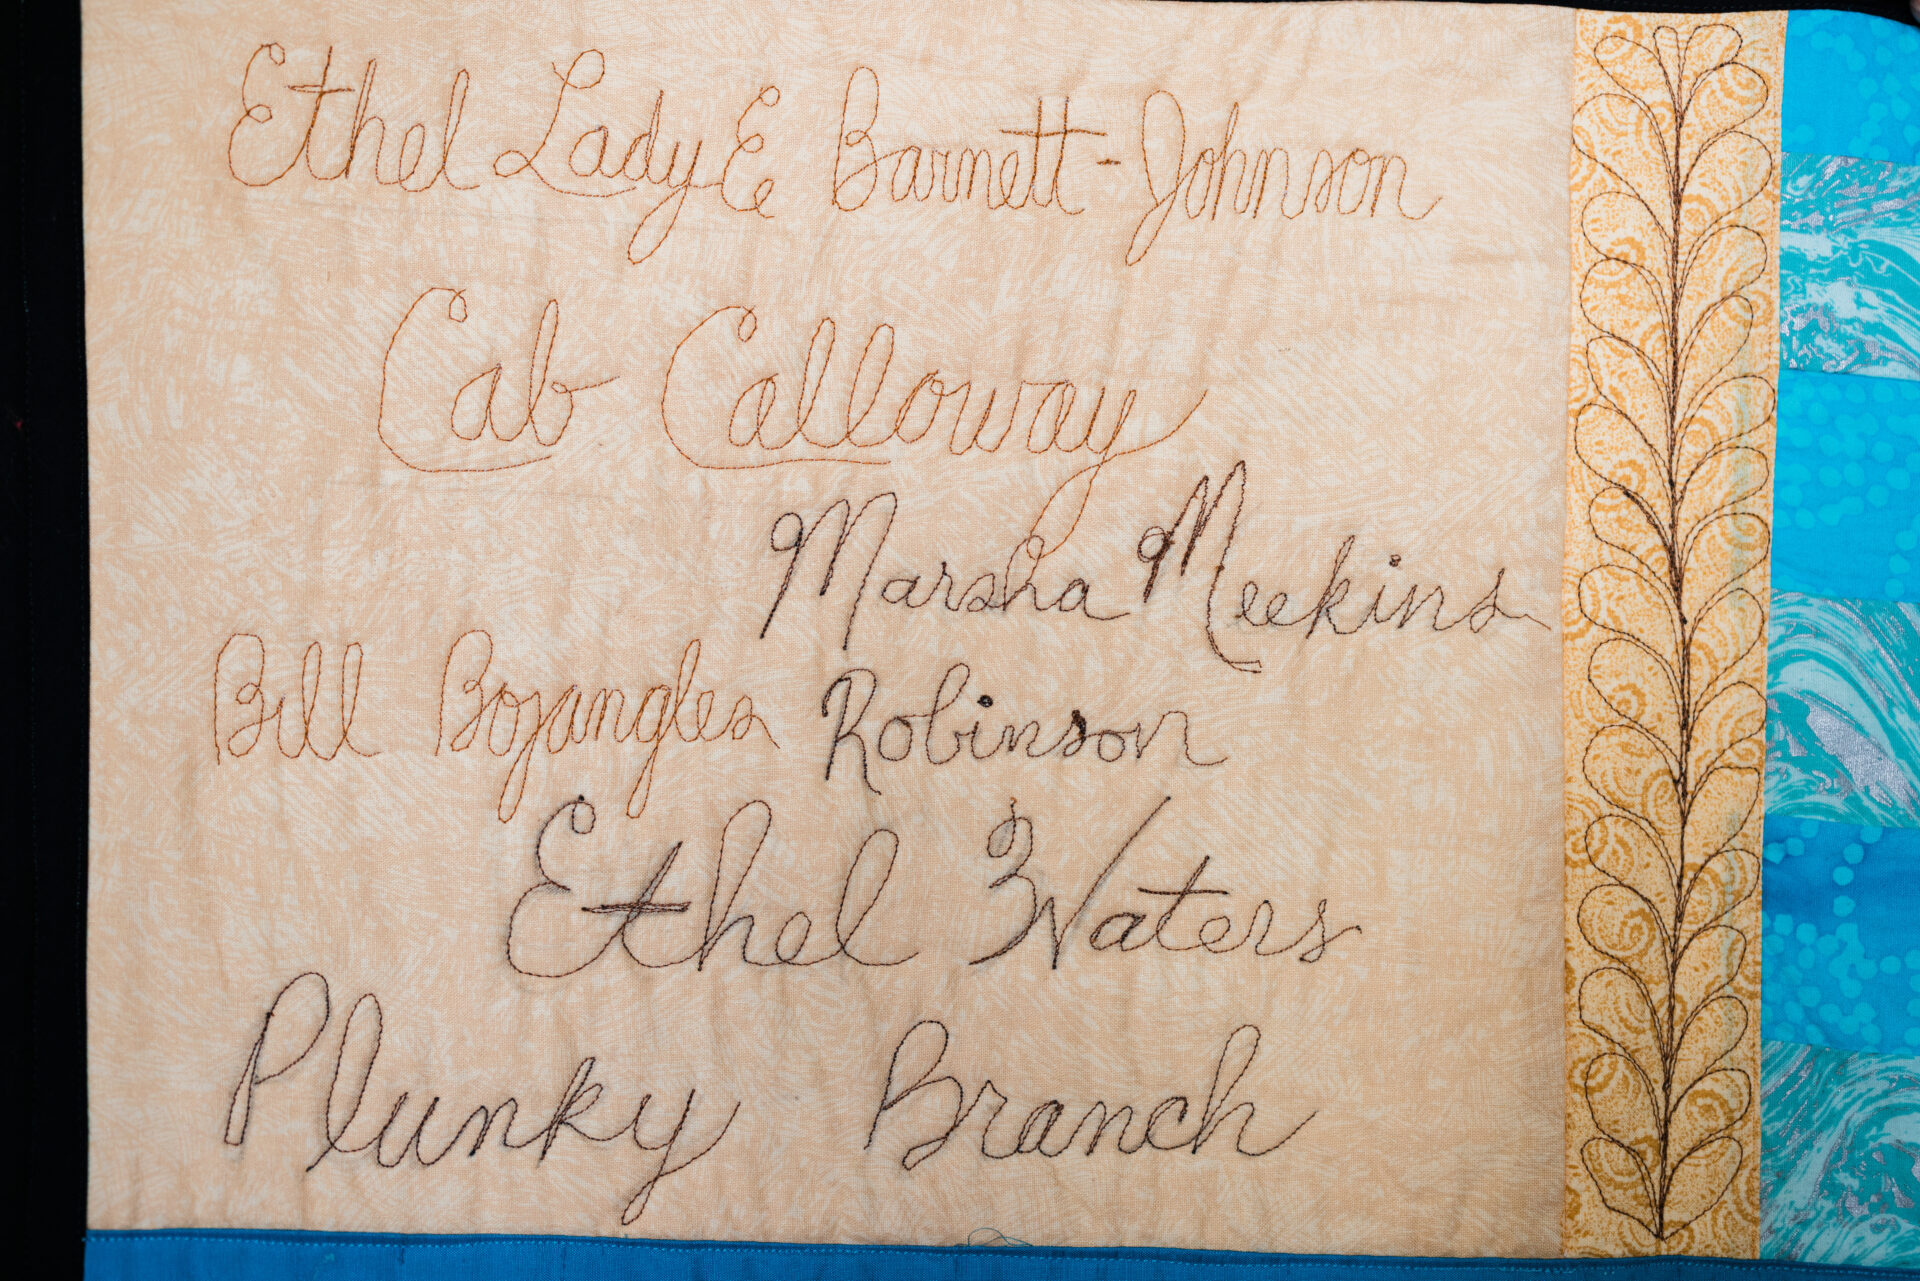 Ethel Lady E Barnett-Johnson
Cab Calloway
Marsha Meekins
Bill Bojangles Robinson
Ethel Waters
Plunky Branch